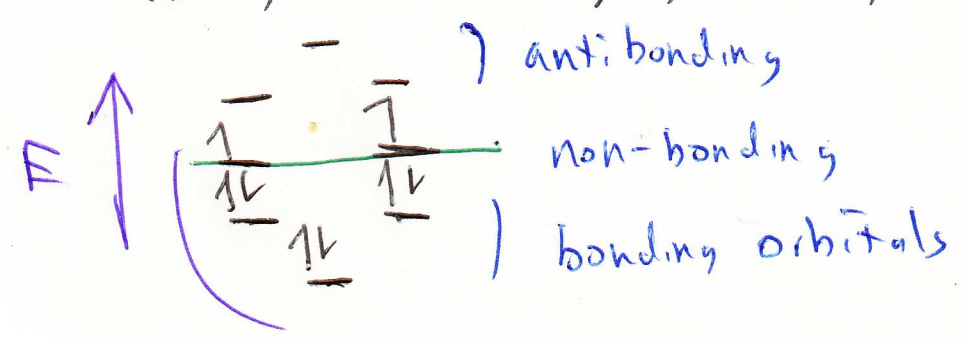 antibonding
E
non-bonding
bonding orbitals